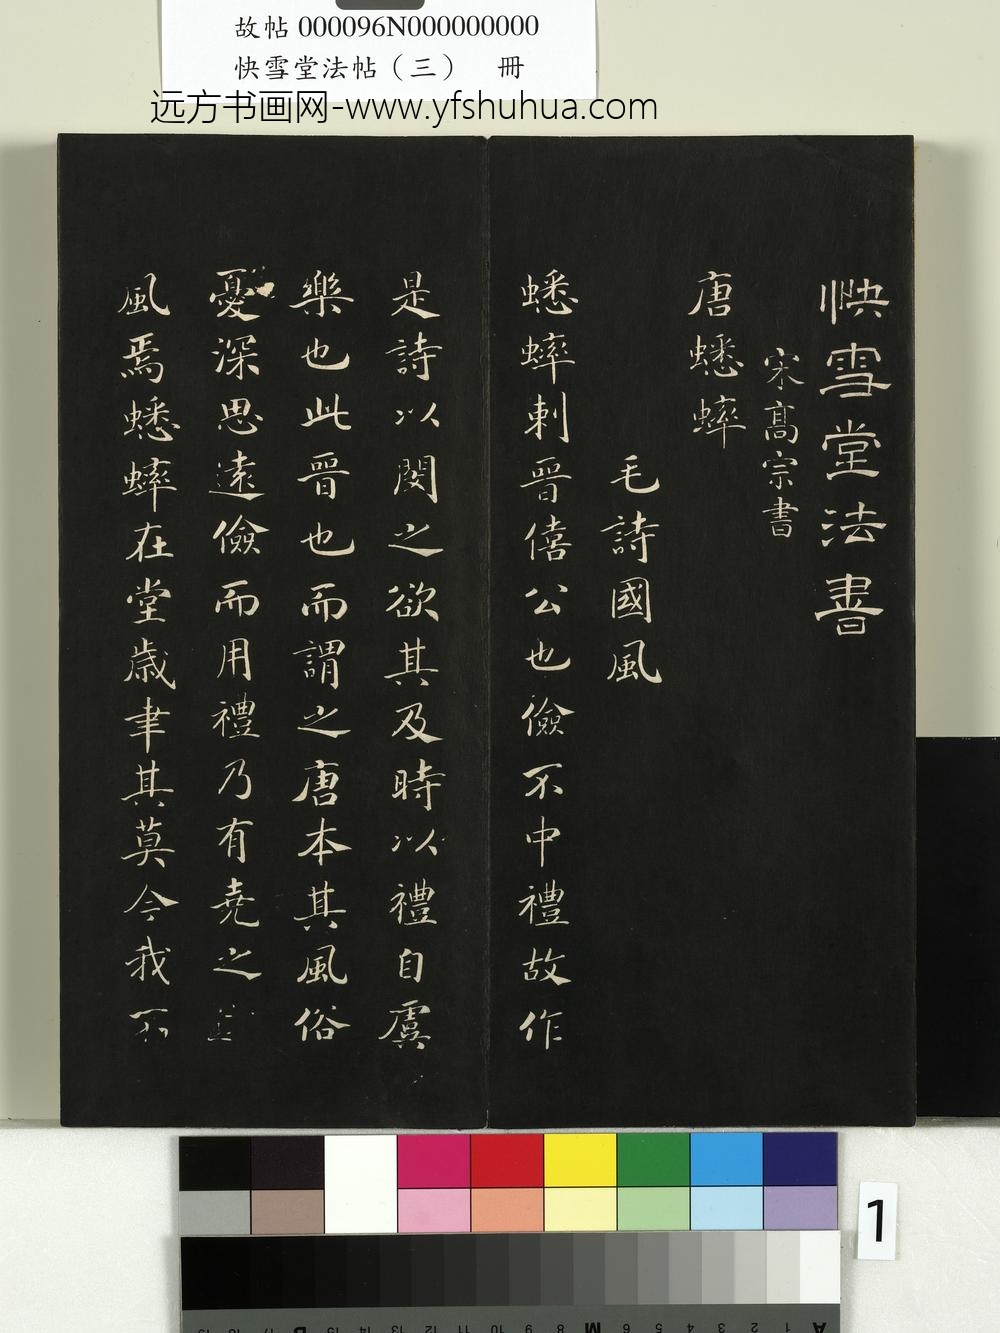 故帖 000096N000000000
快雪堂法帖（三）　冊
远方书画网-www.yfshuhua.com
快雪堂法書
宋高宗書
唐蟋蟀
毛詩國風
蟋蟀刺晉僖公也儉不中禮故作
是詩以閔之欲其及時以禮自虞
樂也此晉也而謂之唐本其風俗
憂深思遠儉而用禮乃有堯之
風焉蟋蟀在堂歲聿其莫今我不
1